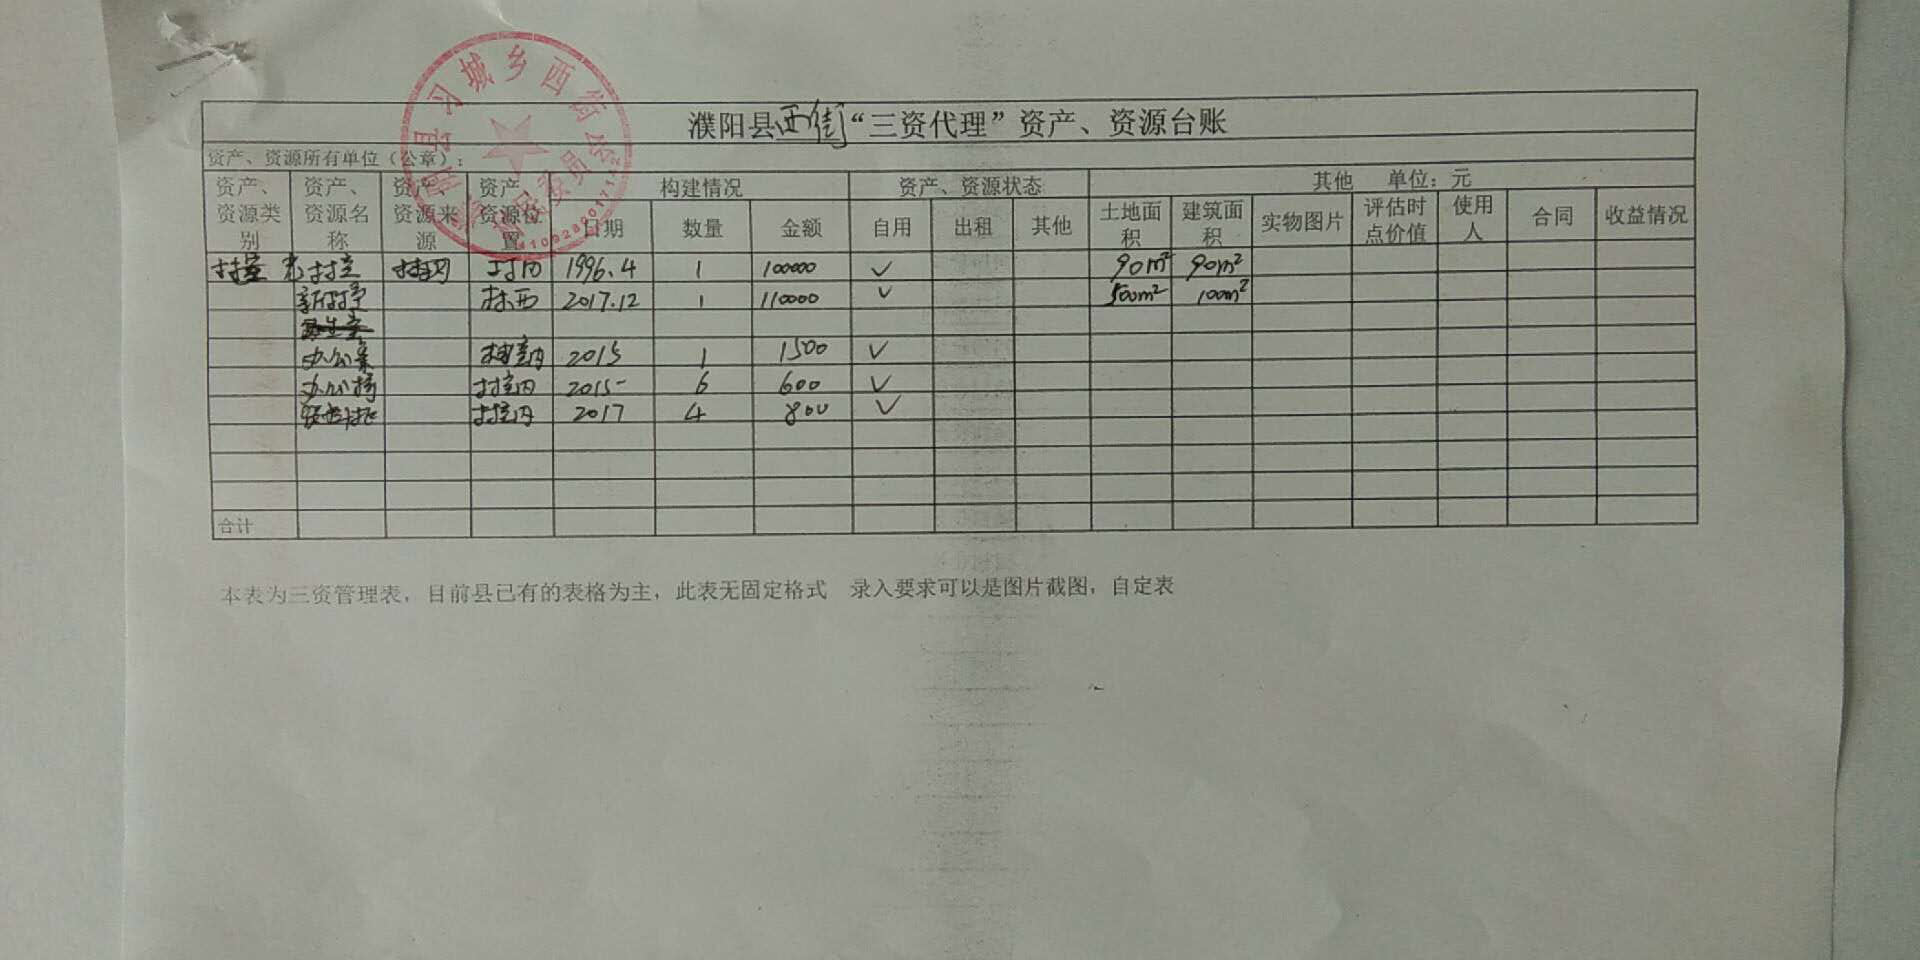 濮阳县西街“三资代理”资产、资源台账
资产、资源所有单位（公章）：
资产、资源类别 资产、资源名称 资产、资源来源 资产、资源位置 构建情况 资产、资源状态 其他 单位：元
日期 数量 金额 自用 出租 其他 土地面积 建筑面积 实物图片 评估时点价值 使用人 合同 收益情况
村室 村室 村内 1996.4 1 100000 ✓ 90m² 90m²
新村室 村西 2017.12 1 110000 ✓ 500m² 100m²
办公桌 村室内 2015 1 1500 ✓
办公椅 村室内 2015 6 600 ✓
村室内 2017 4 800 ✓
合计
本表为三资管理表，目前县已有的表格为主，此表无固定格式 录入要求可以是图片截图，自定表
县习城乡西街村民委员会